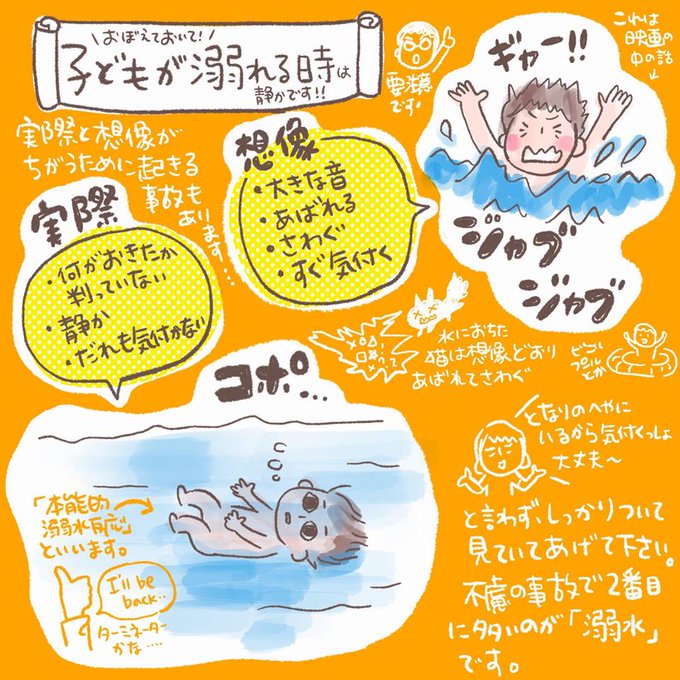 おぼえておいて!
子どもが溺れる時は
静かです!!
要注意
です!
これは
映画の
中の話
ギャー!!
実際と想像が
ちがうために起きる
事故も
あります…
想像
・大きな音
・あばれる
・さわぐ
・すぐ気付く
ジャブ
ジャブ
実際
・何がおきたか
判っていない
・静か
・だれも気付かない
水におちた
猫は想像どおり
あばれてさわぐ
ビニール
プールとか
コポ…
「本能的
溺水反応」
といいます。
I'll be
back...
ターミネーター
かな....
となりのへやに
いるから気付くっしょ
大丈夫〜
と言わず、しっかりついて
見ていてあげて下さい。
不慮の事故で2番目
に多いのが「溺水」
です。